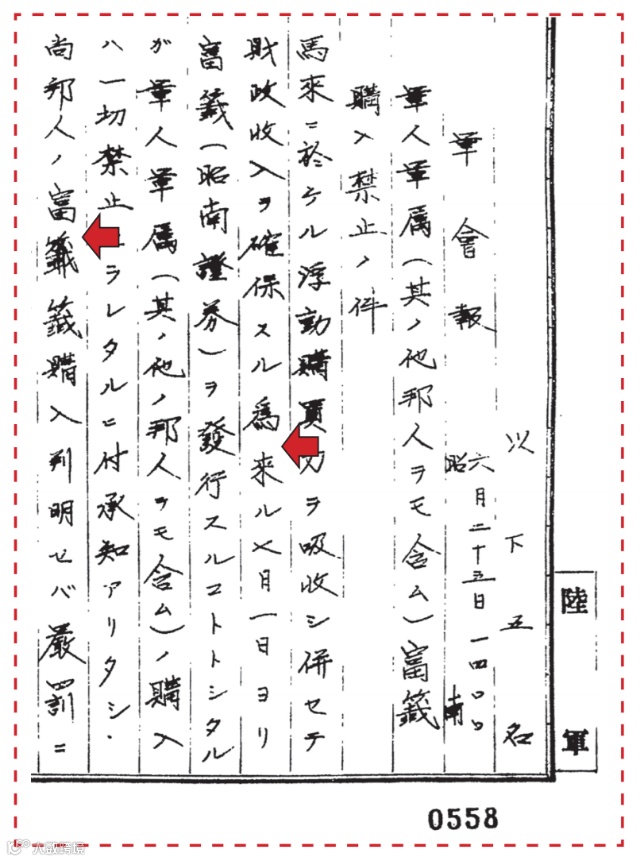 以下五名
軍會報
六月二十五日一四〇〇
昭南
軍人軍属(其ノ他邦人ヲモ含ム)富籤
購入禁止ノ件
馬來ニ於ケル浮動購買力ヲ吸收シ併セテ
財政收入ヲ確保スル爲來ル七月一日ヨリ
富籤(昭南證券)ヲ發行スルコトトシタル
ガ軍人軍属(其ノ他ノ邦人ヲモ含ム)ノ購入
ハ一切禁止セラレタルニ付承知アリタシ.
尚邦人ノ富籤籤購入判明セバ嚴罰ニ
陸軍
0558